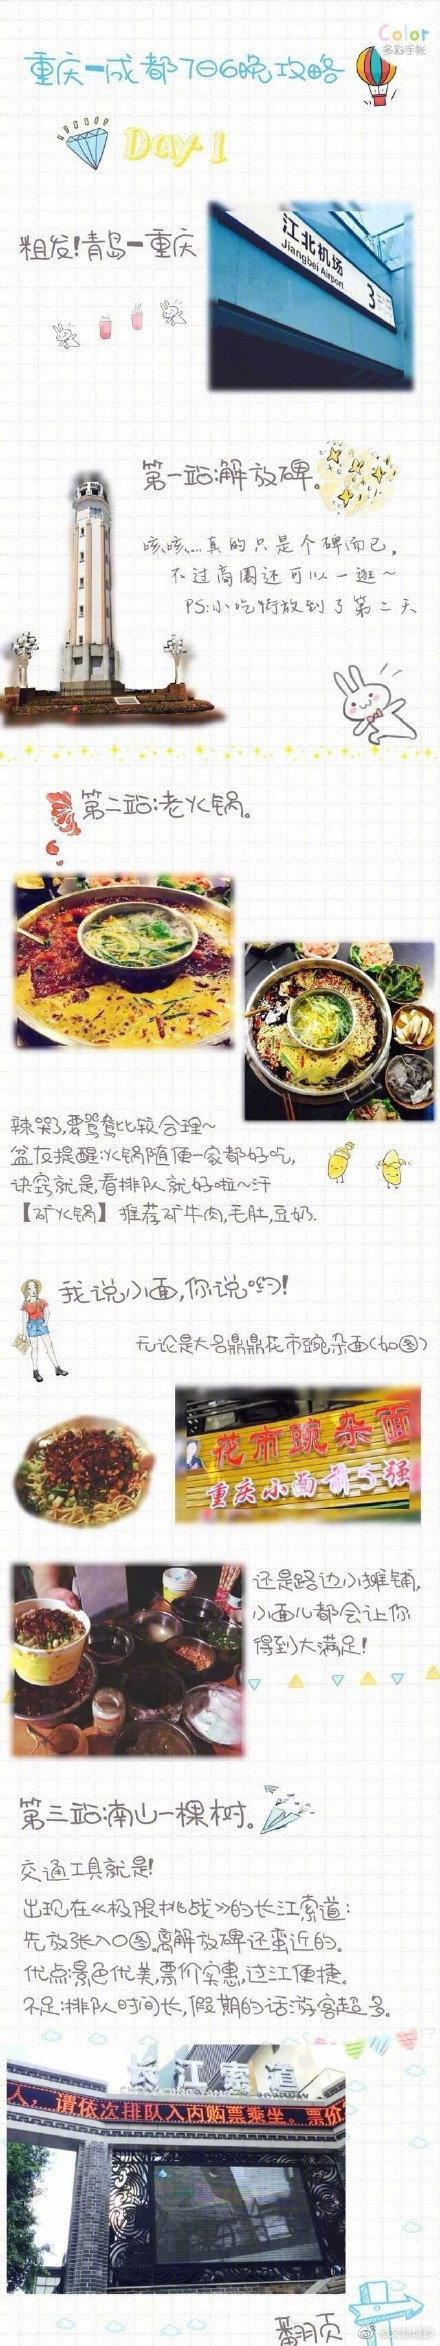 Color
多彩手帐
重庆一成都7日6晚攻略
Day 1
粗发!青岛一重庆
江北机场
Jiangbei Airport
3
第一站:解放碑。
咳、咳、....真的只是个碑而已,
不过商圈还可以一逛~
PS:小吃街放到了第二天
第二站:老火锅。
辣哭了,要鸳鸯比较合理~
盆友提醒:火锅随便一家都好吃,
诀窍就是,看排队就好啦~汗
【矿火锅】推荐矿牛肉,毛肚,豆奶.
我说小面,你说哟!
无论是大名鼎鼎花市豌杂面(如图)
花市豌杂面
重庆小面前5强
还是路边小摊铺,
小面儿都会让你
得到大满足!
第三站:南山一棵树。
交通工具就是!
出现在《极限挑战》的长江索道:
先放张入口图.离解放碑还蛮近的.
优点:景色优美,票价实惠,过江便捷.
不足:排队时间长,假期的话游客超多.
长江索道
人,请依次排队入内购票乘坐。票价
翻页